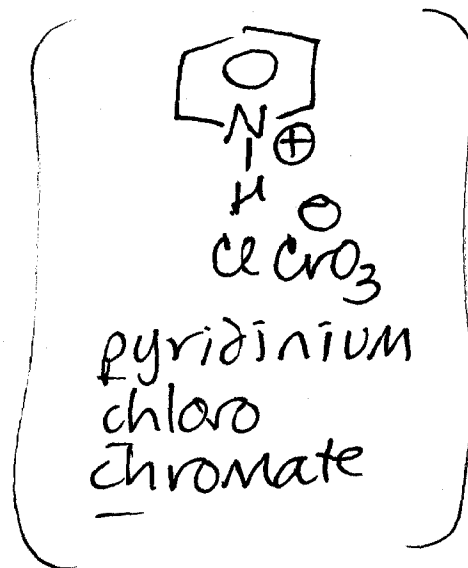 N
⊕
H
⊖
ClCrO3
pyridinium
chloro
chromate